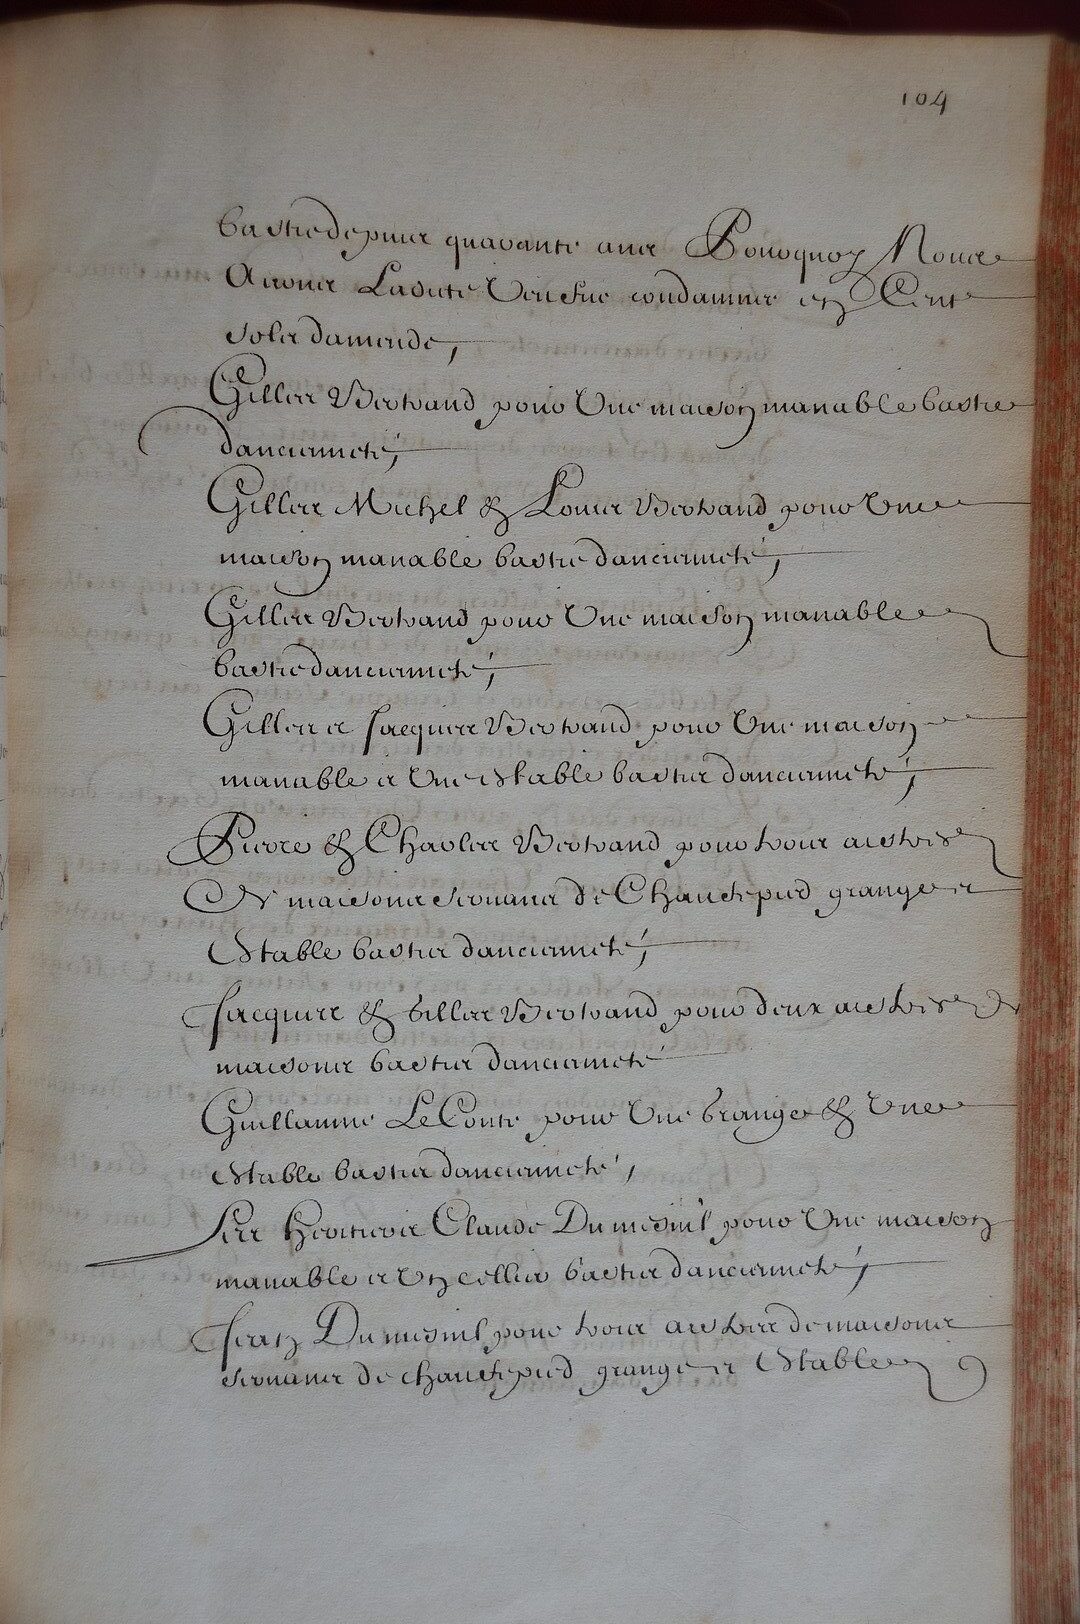 104
bastie depuis quarante ans Pourquoy Nous
Auons Ladite Veufue condamnée en Cent
solz damende,
Gilles Bertrand pour Une maison manable bastie
dancienneté,
Gilles Michel & Louis Bertrand pour Une
maison manable bastie dancienneté,
Gilles Bertrand pour Une maison manable
bastie dancienneté,
Gilles et Jacques Bertrand pour Une maison
manable et Une estable basties dancienneté,
Pierre & Charles Bertrand pour trois aistres
De maisons seruans de Chaudepied grange et
Estable basties dancienneté,
Jacques & Gilles Bertrand pour deux aistres De
maisons basties dancienneté
Guillaume Le Conte pour Une Grange & Une
Estable basties dancienneté,
Les heritiers Claude Dumesnil pour Une maison
manable et Un cellier basties dancienneté,
Jean Dumesnil pour trois aistres de maisons
seruans de chaudepied grange et Estable